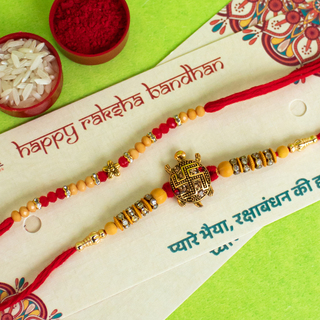 happy raksha bandhan
प्यारे भैया, रक्षाबंधन की